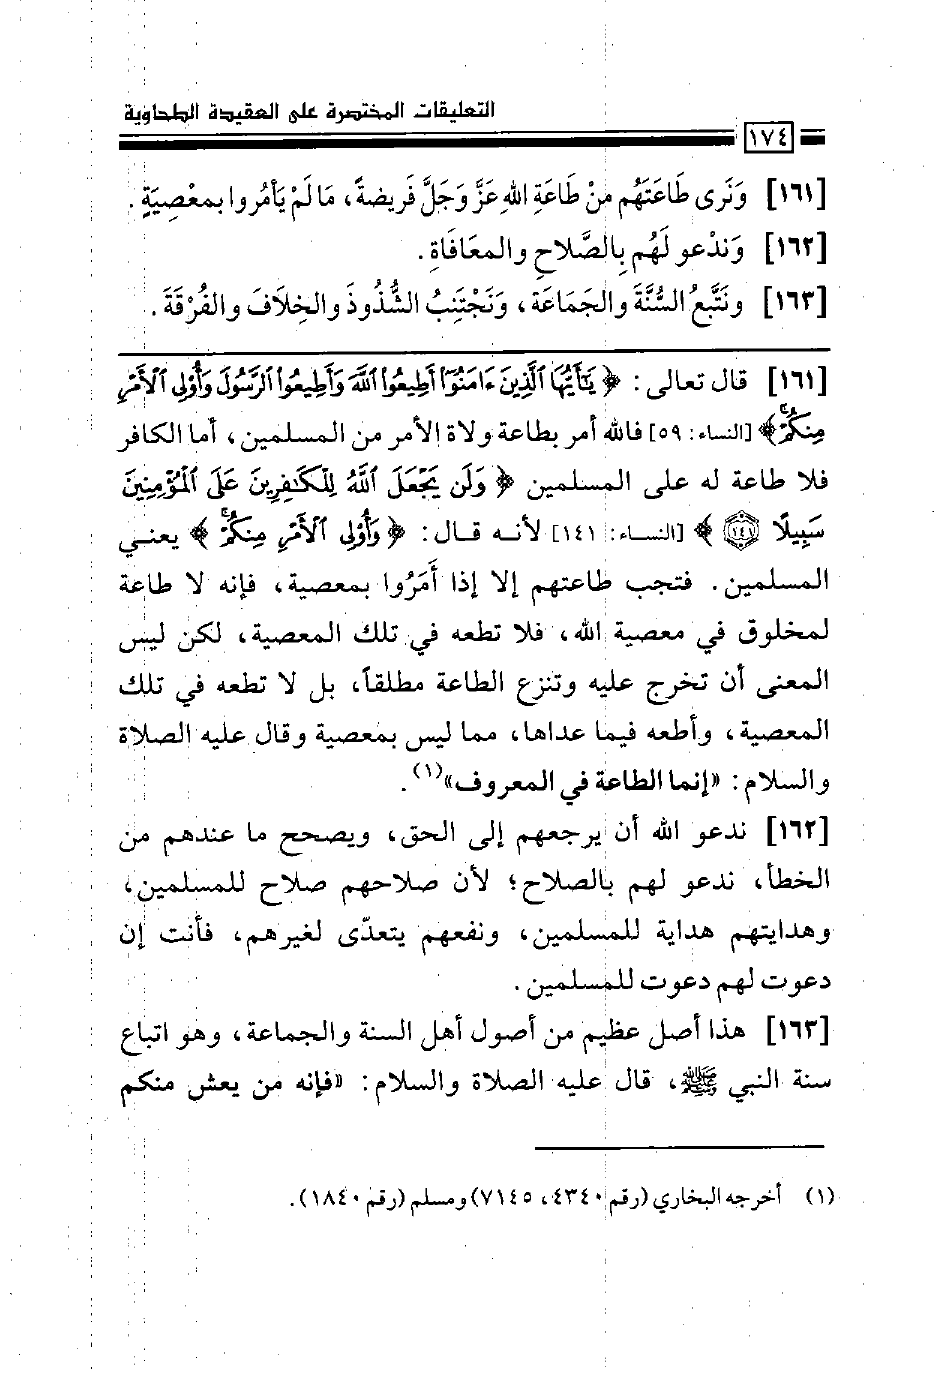 التعليقات المختصرة على العقيدة الطحاوية
١٧٤
[١٦١] وَنَرى طَاعَتَهُم مِنْ طَاعَةِ اللهِ عَزَّ وَجَلَّ فَرِيضةً، مَا لَمْ يَأمُروا بمعْصِيَةٍ.
[١٦٢] وَندْعو لَهُم بِالصَّلاحِ والمعَافَاةِ.
[١٦٣] ونَتَّبعُ السُّنَّةَ والجَمَاعَة، وَنَجْتَنِبُ الشُّذُوذَ والخِلافَ والفُرْقَةَ.
[١٦١] قال تعالى: ﴿يَٰٓأَيُّهَا ٱلَّذِينَ ءَامَنُوٓا۟ أَطِيعُوا۟ ٱللَّهَ وَأَطِيعُوا۟ ٱلرَّسُولَ وَأُو۟لِى ٱلْأَمْرِ
مِنكُمْ ۖ﴾ [النساء: ٥٩] فالله أمر بطاعة ولاة الأمر من المسلمين، أما الكافر
فلا طاعة له على المسلمين ﴿وَلَن يَجْعَلَ ٱللَّهُ لِلْكَٰفِرِينَ عَلَى ٱلْمُؤْمِنِينَ
سَبِيلًا ١٤١﴾ [النساء: ١٤١] لأنه قال: ﴿وَأُو۟لِى ٱلْأَمْرِ مِنكُمْ ۖ﴾ يعني
المسلمين. فتجب طاعتهم إلا إذا أَمَرُوا بمعصية، فإنه لا طاعة
لمخلوق في معصية الله، فلا تطعه في تلك المعصية، لكن ليس
المعنى أن تخرج عليه وتنزع الطاعة مطلقاً، بل لا تطعه في تلك
المعصية، وأطعه فيما عداها، مما ليس بمعصية وقال عليه الصلاة
والسلام: «إنما الطاعة في المعروف»(١).
[١٦٢] ندعو الله أن يرجعهم إلى الحق، ويصحح ما عندهم من
الخطأ، ندعو لهم بالصلاح؛ لأن صلاحهم صلاح للمسلمين،
وهدايتهم هداية للمسلمين، ونفعهم يتعدّى لغيرهم، فأنت إن
دعوت لهم دعوت للمسلمين.
[١٦٣] هذا أصل عظيم من أصول أهل السنة والجماعة، وهو اتباع
سنة النبي ﷺ، قال عليه الصلاة والسلام: «فإنه من يعش منكم
(١) أخرجه البخاري (رقم ٤٣٤٠، ٧١٤٥) ومسلم (رقم ١٨٤٠).